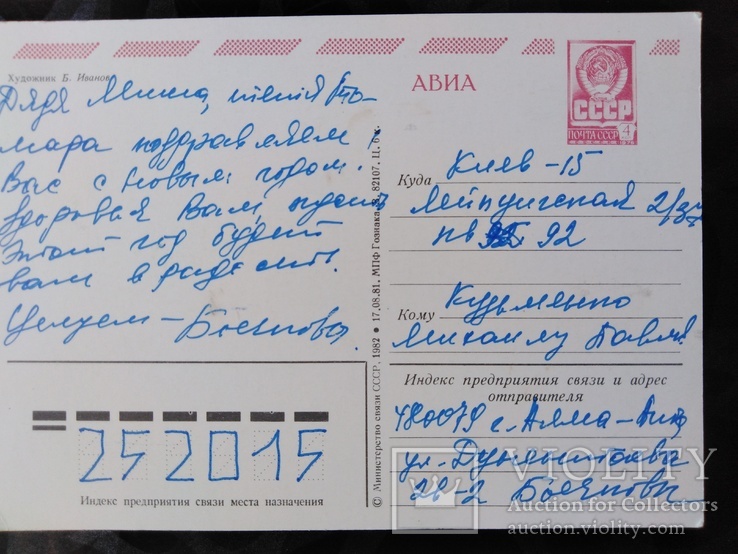 Художник Б. Иванов
Дядя Миша, тётя Та-
мара поздравляем
Вас с Новым годом.
Здоровья Вам, пусть
Этот год будет
вам в радость.
Целуем –
АВИА
СССР
ПОЧТА СССР
4
Куда Киев-15
Лейпцигская 2/37
кв 92
Кому Кузьменко
Михаилу Павл.
Индекс предприятия связи и адрес
отправителя
480079 г. Алма-Ата
ул.
28-2
252015
Индекс предприятия связи места назначения
© Министерство связи СССР, 1982 • 17.08.81. МПФ Гознака. З. 82107. Ц. 6 к.
VIOLITY
Auction for Collectors
auction.violity.com